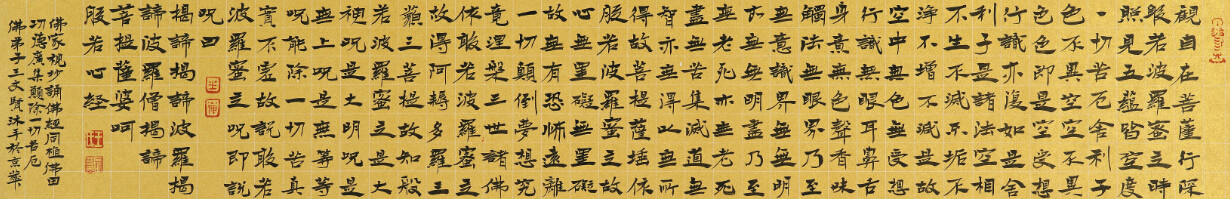 觀自在菩薩行深
般若波羅蜜多時
照見五蘊皆空度
一切苦厄舍利子
色不異空空不異
色色即是空受想
行識亦復如是舍
利子是諸法空相
不生不滅不垢不
淨不增不減是故
空中無色無受想
行識無眼耳鼻舌
身意無色聲香味
觸法無眼界乃至
無意識界無無明
亦無無明盡乃至
無老死亦無老死
盡無苦集滅道無
智亦無得以無所
得故菩提薩埵依
般若波羅蜜多故
心無罣礙無罣礙
故無有恐怖遠離
一切顛倒夢想究
竟涅槃三世諸佛
依般若波羅蜜多
故得阿耨多羅三
藐三菩提故知般
若波羅蜜多是大
神呪是大明呪是
無上呪是無等等
呪能除一切苦真
實不虛故說般若
波羅蜜多呪即說
呪曰
揭諦揭諦波羅揭
諦波羅僧揭諦
菩提薩婆呵
般若心經
佛家視抄誦佛經同植佛田
功德廣集顛除一切苦厄
佛弟子王文賢沐手於京華